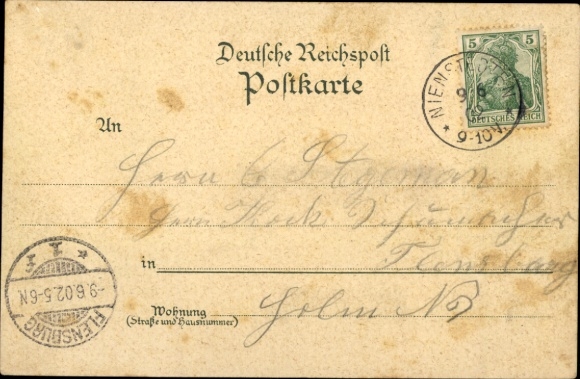 Deutsche Reichspost
Postkarte
5 5
DEUTSCHES REICH
NIENSTEDTEN
9-10V.
An
Herrn C Stegeman
Herrn Hock Schumacher
in Flensburg
Wohnung Holm
(Straße und Hausnummer)
FLENSBURG
-9.6.02.5-6N
* 1 *